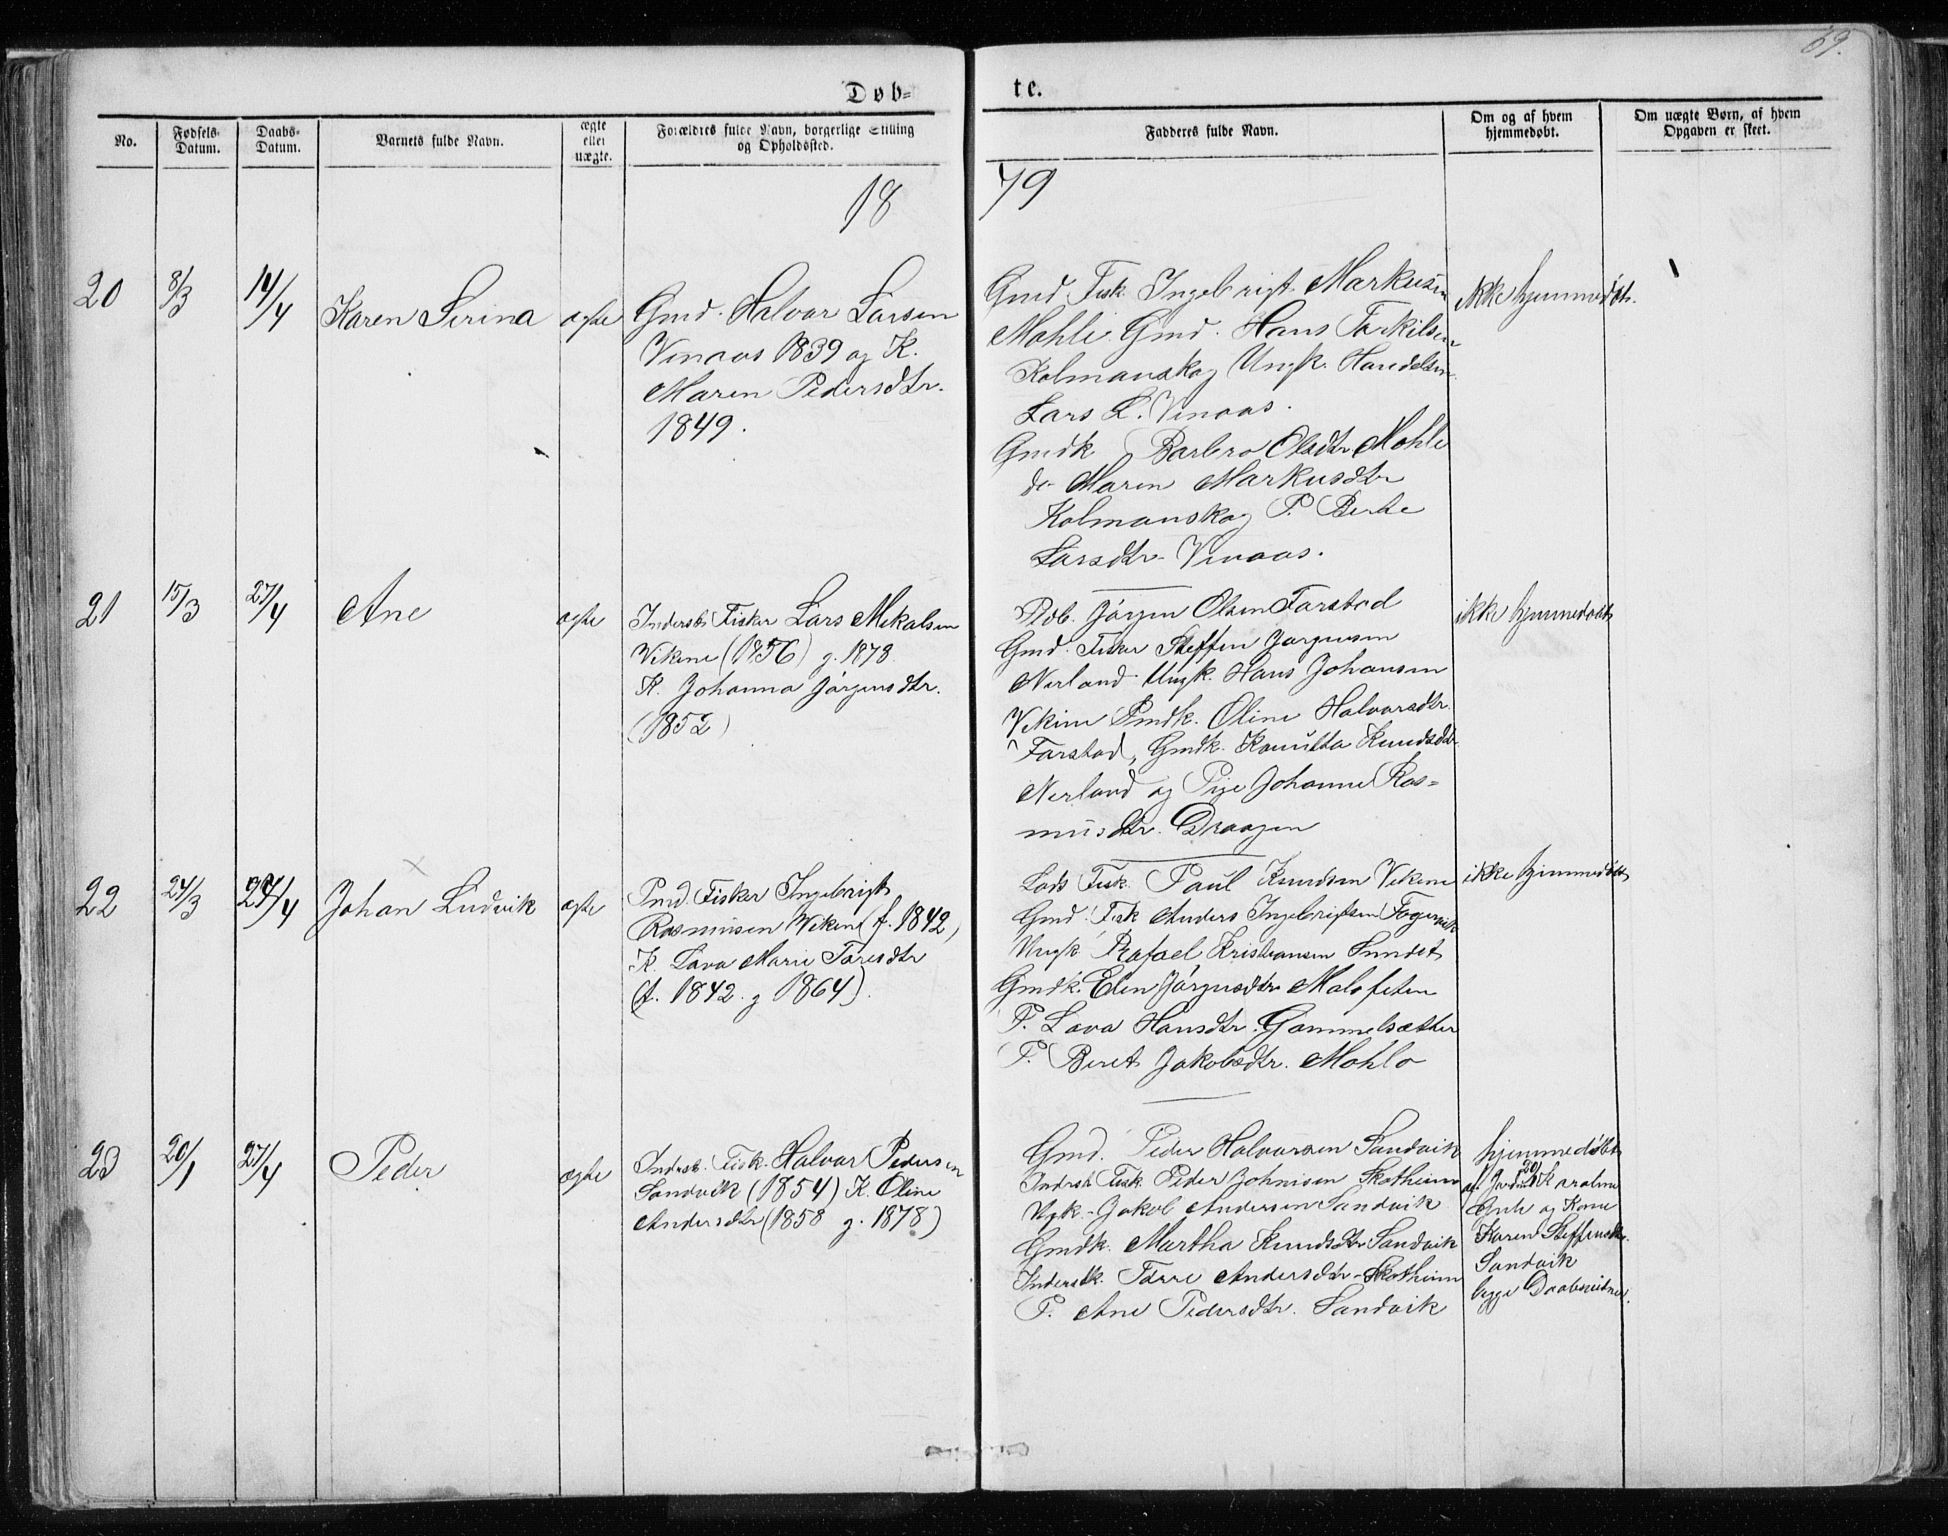 69.
Døb-
te.
No.
Fødsels-
Datum.
Daabs-
Datum.
Barnets fulde Navn.
ægte
eller
uægte.
Forældres fulde Navn, borgerlige Stilling
og Opholdssted.
Fadderes fulde Navn.
Om og af hvem
hjemmedøbt.
Om uægte Børn, af hvem
Opgaven er skeet.
18
79
20
8/3
14/4
Karen Serina
ægte
Gmd. Halvar Larsen
Vinaas 1839 og K.
Maren Pedersdtr.
1849.
Gmd. Fisk. Ingebrigt Markusen
Mohle Gmd. Hans Torkilsen
Kolmanskog Ungk. Handelsm.
Lars L. Vinaas.
Gmdk Barbro Olsdtr Mohle
do Maren Markusdtr
Kolmanskog P. Berte
Larsdtr Vinaas.
ikke hjemmedøbt.
21
15/3
27/4
Ane
ægte
Inderst. Fisker Lars Mekalsen
Vikene (1856) g. 1878
K. Johanna Jørgensdtr.
(1852)
Jørgen Olsen Farstad
Gmd. Fisker Steffen Jørgensen
Nerland Ungk. Hans Johansen
Vikene Pmdk. Oline Halvorsdtr.
Farstad, Gmdk. Knutsdtr
Nerland og Pige Johanne Ras-
musdtr. Draagen
ikke hjemmedøbt
22
24/3
27/4
Johan Ludvik
ægte
Pmd. Fisker Ingebrigt
Rasmusen Viken (f. 1842,
K. Lava Marie Toresdtr
(f. 1842. g 1864).
Lods Fisk. Paul Knudsen Vikene
Gmd. Fisk Anders Ingebrigtsen Fogervik
Ungk Rafael Kristiansen Sundet
Gmdk. Elen Jørgensdtr Malefeten
P. Lava Hansdtr. Gammelsæther
P. Beret Jakobsdtr. Mohlo
ikke hjemmedøbt
23
20/1
27/4
Peder
ægte
Inderst. Fisk. Halvar Pedersen
Sandvik (1854) K. Oline
Andersdtr (1858 g. 1878)
Gmd. Peder Halvorsen Sandvik
Inderst. Fisk. Peder Johnsen Skotheim
Ugk. Jakob Andersen Sandvik
Gmdk. Martha Knudsdtr Sandvik
Inderstk. Andersdtr Skotheim
P. Ane Pedersdtr. Sandvik
hjemmedøbt
20/1
af Jordm. Karoline
og Kone
Karen Steffensdtr.
Sandvik
begge Daabsvidner.